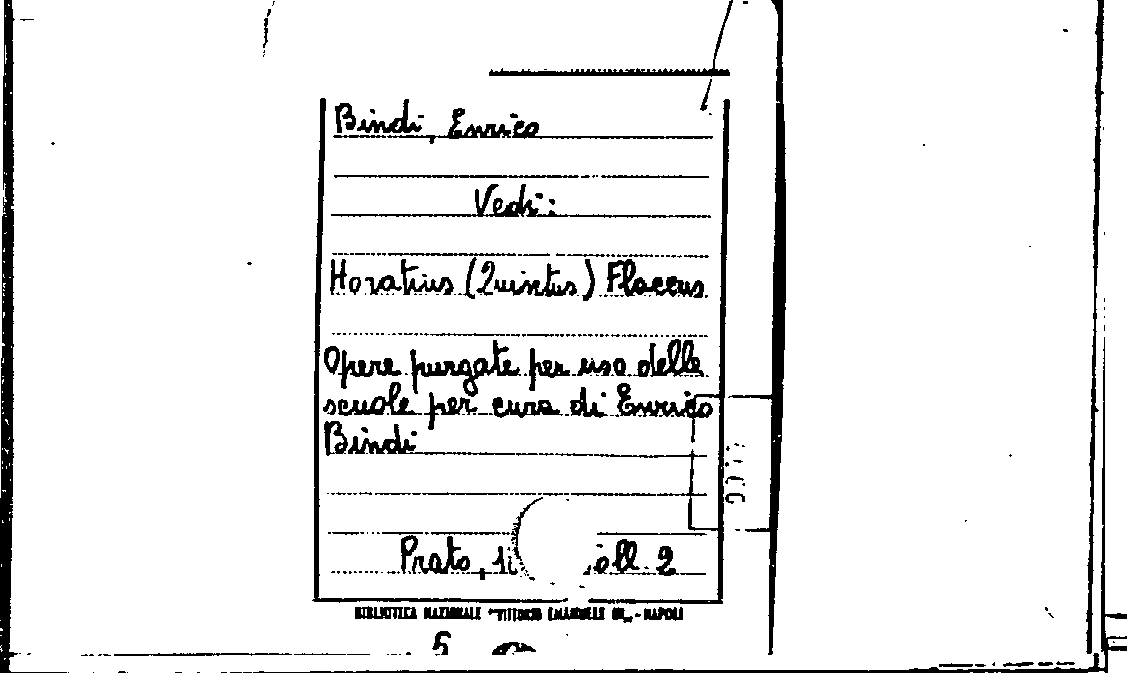 Bindi, Enrico
Vedi:
Horatius (Quintus) Flaccus
Opere purgate per uso delle
scuole per cura di Enrico
Bindi
Prato, voll. 2
BIBLIOTECA NAZIONALE "VITTORIO EMANUELE III„ - NAPOLI
5